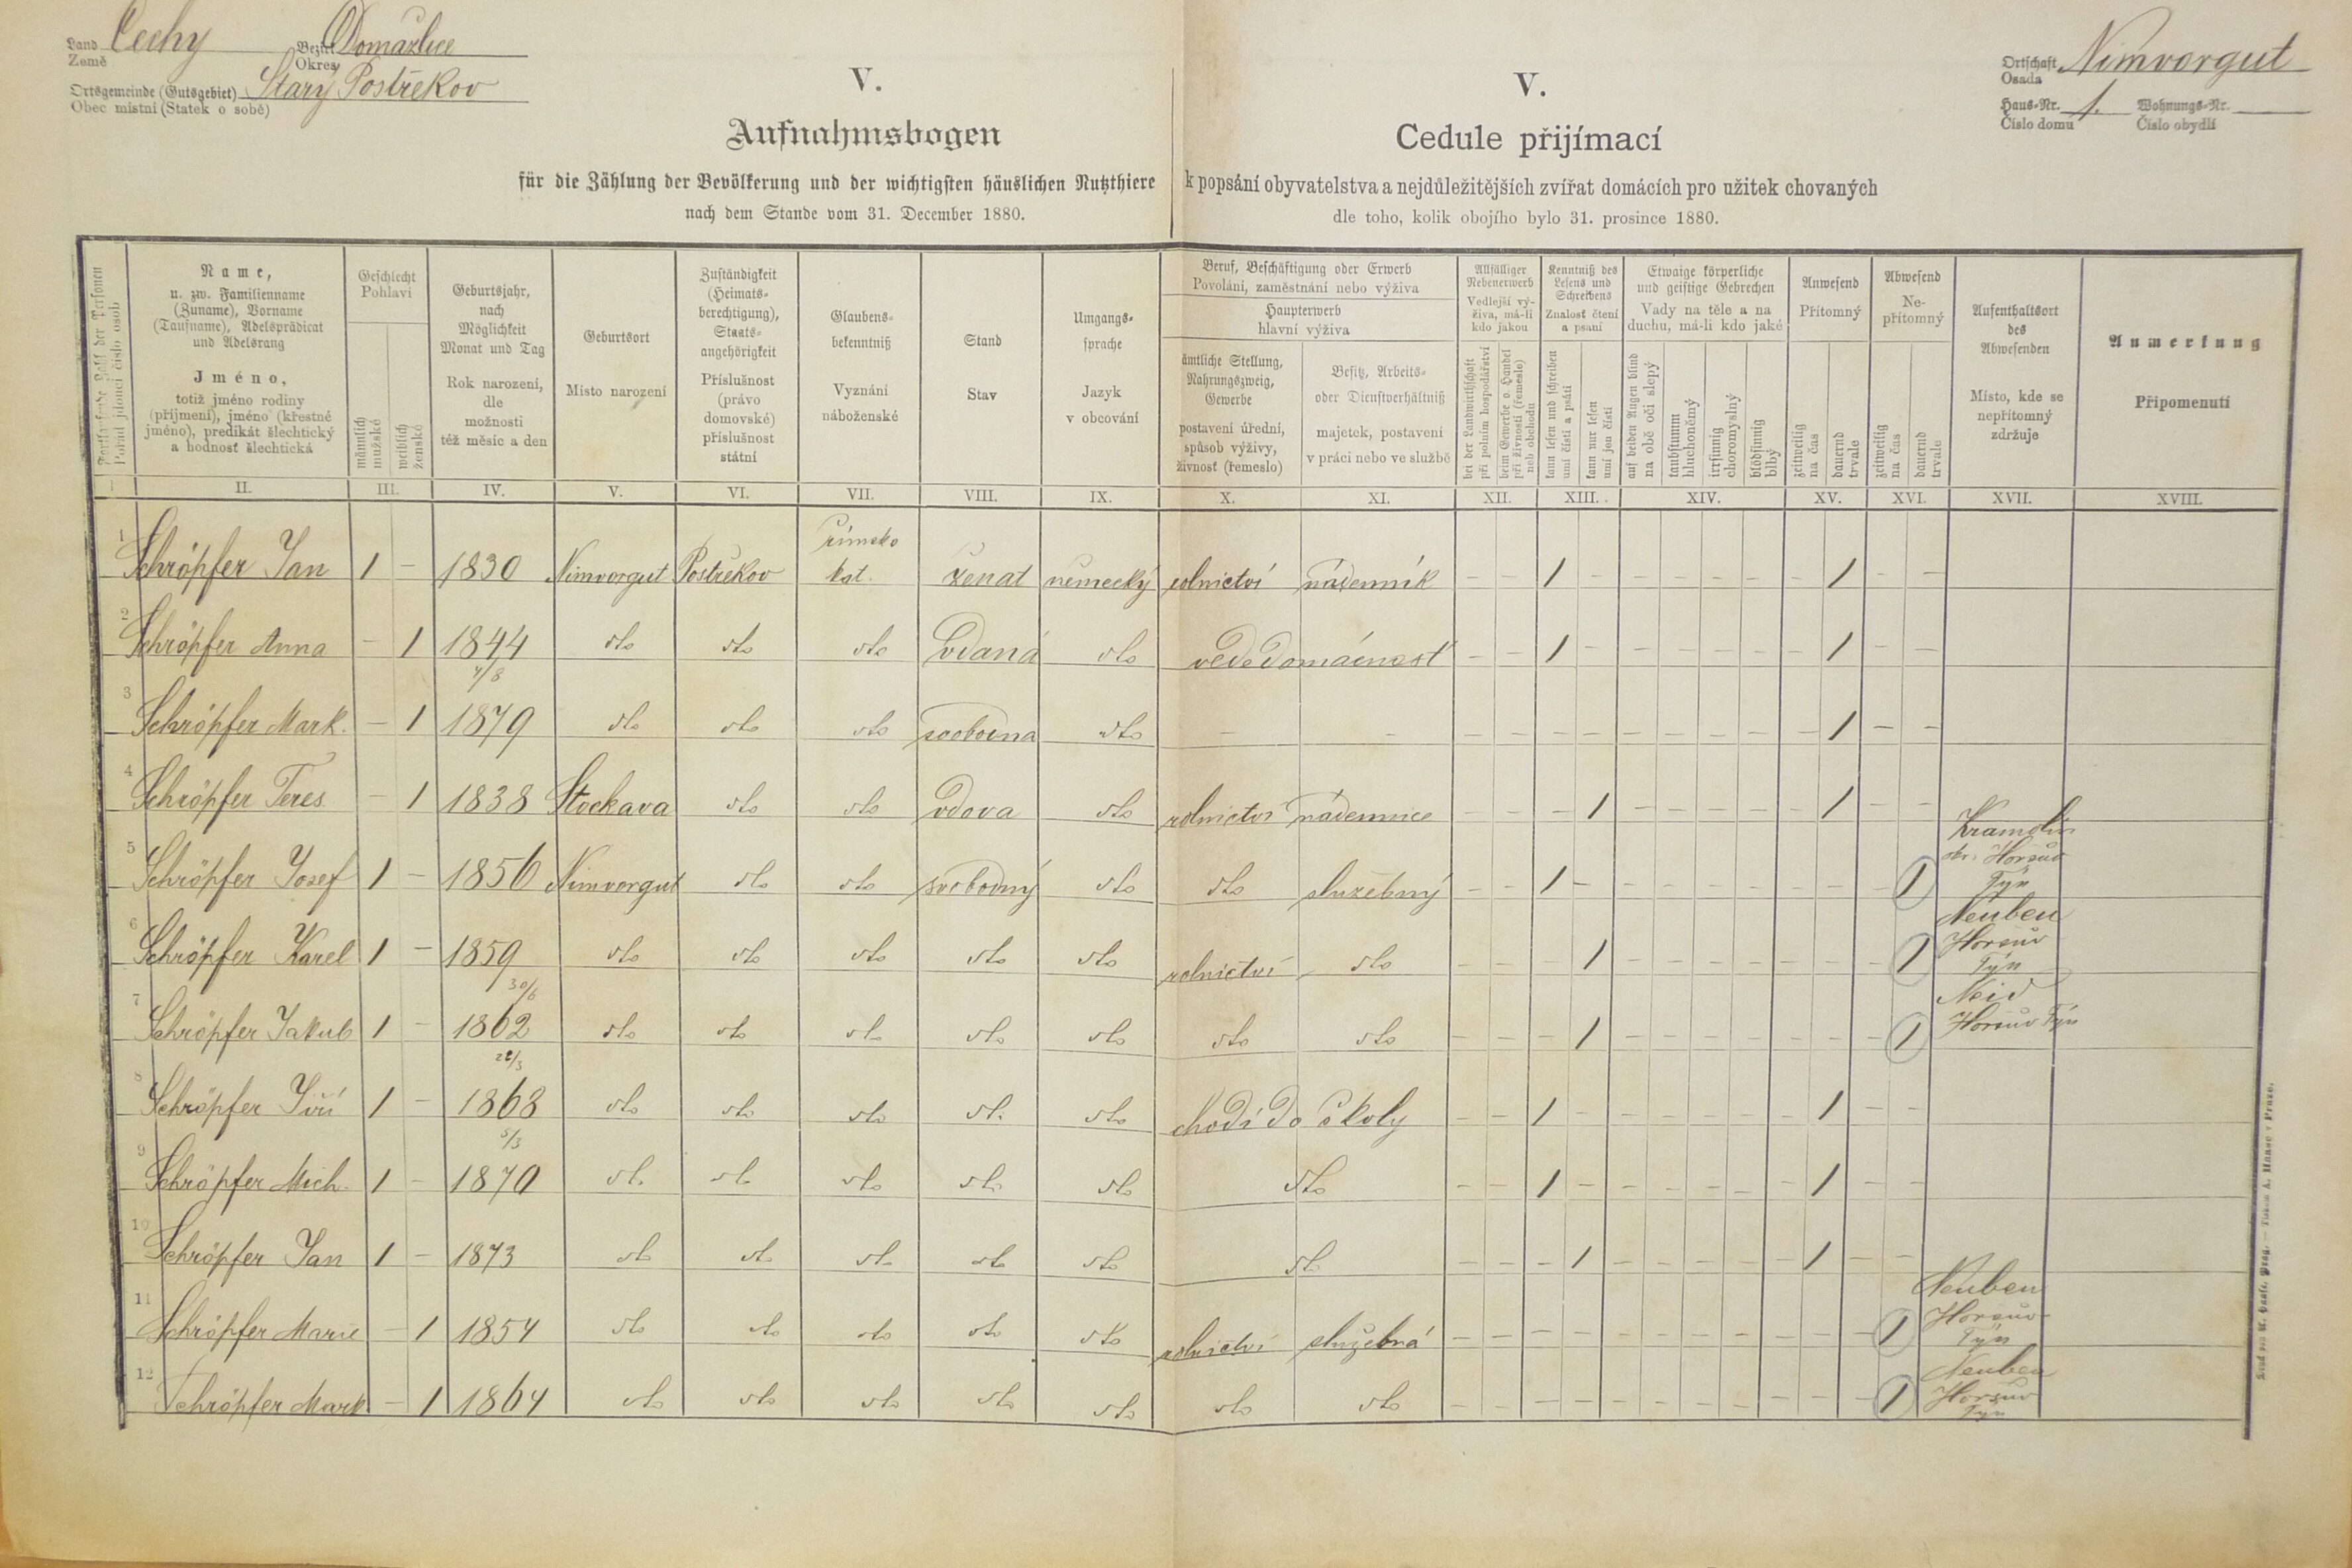 Land Země Čechy Bezirk Okres Domažlice
Ortsgemeinde (Gutsgebiet) Obec místní (Statek o sobě) Starý Postřekov
Ortschaft Osada Nimvorgut
Haus-Nr. Číslo domu 1. Wohnungs-Nr. Číslo obydlí
V.
Aufnahmsbogen
für die Zählung der Bevölkerung und der wichtigsten häuslichen Nutzthiere
nach dem Stande vom 31. December 1880.
V.
Cedule přijímací
k popsání obyvatelstva a nejdůležitějších zvířat domácích pro užitek chovaných
dle toho, kolik obojího bylo 31. prosince 1880.
Fortlaufende Zahl der Personen
Pořád jdoucí číslo osob
Name,
u. zw. Familienname
(Zuname), Vorname
(Taufname), Adelsprädicat
und Adelsrang
Jméno,
totiž jméno rodiny
(příjmení), jméno (křestné
jméno), predikát šlechtický
a hodnosť šlechtická
Geschlecht
Pohlaví
männlich
mužské
weiblich
ženské
Geburtsjahr,
nach
Möglichkeit
Monat und Tag
Rok narození,
dle
možnosti
též měsíc a den
Geburtsort
Místo narození
Zuständigkeit
(Heimats-
berechtigung),
Staats-
angehörigkeit
Příslušnost
(právo
domovské)
příslušnost
státní
Glaubens-
bekenntniß
Vyznání
náboženské
Stand
Stav
Umgangs-
sprache
Jazyk
v obcování
Beruf, Beschäftigung oder Erwerb
Povolání, zaměstnání nebo výživa
Haupterwerb
hlavní výživa
ämtliche Stellung,
Nahrungszweig,
Gewerbe
postavení úřední,
spůsob výživy,
živnosť (řemeslo)
Besitz, Arbeits-
oder Dienstverhältniß
majetek, postavení
v práci nebo ve službě
Allfälliger
Nebenerwerb
Vedlejší vý-
živa, má-li
kdo jakou
bei der Landwirthschaft
při polním hospodářství
beim Gewerbe o. Handel
při živnosti (řemesle)
neb obchodu
Kenntniß des
Lesens und
Schreibens
Znalosť čtení
a psaní
kann lesen und schreiben
umí čísti a psáti
kann nur lesen
umí jen čísti
Etwaige körperliche
und geistige Gebrechen
Vady na těle a na
duchu, má-li kdo jaké
auf beiden Augen blind
na obě oči slepý
taubstumm
hluchoněmý
irrsinnig
choromyslný
blödsinnig
blbý
Anwesend
Přítomný
zeitweilig
na čas
dauernd
trvale
Abwesend
Ne-
přítomný
zeitweilig
na čas
dauernd
trvale
Aufenthaltsort
des
Abwesenden
Místo, kde se
nepřítomný
zdržuje
Anmerkung
Připomenutí
I II. III. IV. V. VI. VII. VIII. IX. X. XI. XII. XIII. XIV. XV. XVI. XVII. XVIII.
1 Schröpfer Jan 1 – 1830 Nimvorgut Postřekov římsko kat. ženat německý rolnictví nádenník – – 1 – – – – – – 1 – –
2 Schröpfer Anna – 1 1844 dto dto dto vdaná dto vede domácnosť – – 1 – – – – – – 1 – –
3 Schröpfer Mark. – 1 4/8 1879 dto dto dto svobodna dto – – – – – – – – – – – 1 – –
4 Schröpfer Teres – 1 1838 Stockava dto dto vdova dto rolnictví nádennice – – – 1 – – – – – 1 – –
5 Schröpfer Josef 1 – 1856 Nimvorgut dto dto svobodný dto dto služebný – – 1 – – – – – – – – 1 Kramolín okr. Horšův Týn
6 Schröpfer Karel 1 – 1859 dto dto dto dto dto rolnictví dto – – – 1 – – – – – – – 1 Neuben Horšův Týn
7 Schröpfer Jakub 1 – 30/6 1862 dto dto dto dto dto dto dto – – – 1 – – – – – – – 1 Neid Horšův Týn
8 Schröpfer Jiří 1 – 22/3 1868 dto dto dto dto dto chodí do školy – – 1 – – – – – – 1 – –
9 Schröpfer Mich. 1 – 5/3 1870 dto dto dto dto dto dto – – 1 – – – – – – 1 – –
10 Schröpfer Jan 1 – 1873 dto dto dto dto dto dto – – – 1 – – – – – 1 – –
11 Schröpfer Marie – 1 1854 dto dto dto dto dto rolnictví služebná – – – – – – – – – – – 1 Neuben Horšův Týn
12 Schröpfer Mark – 1 1864 dto dto dto dto dto dto dto – – – – – – – – – – – 1 Neuben Horšův Týn